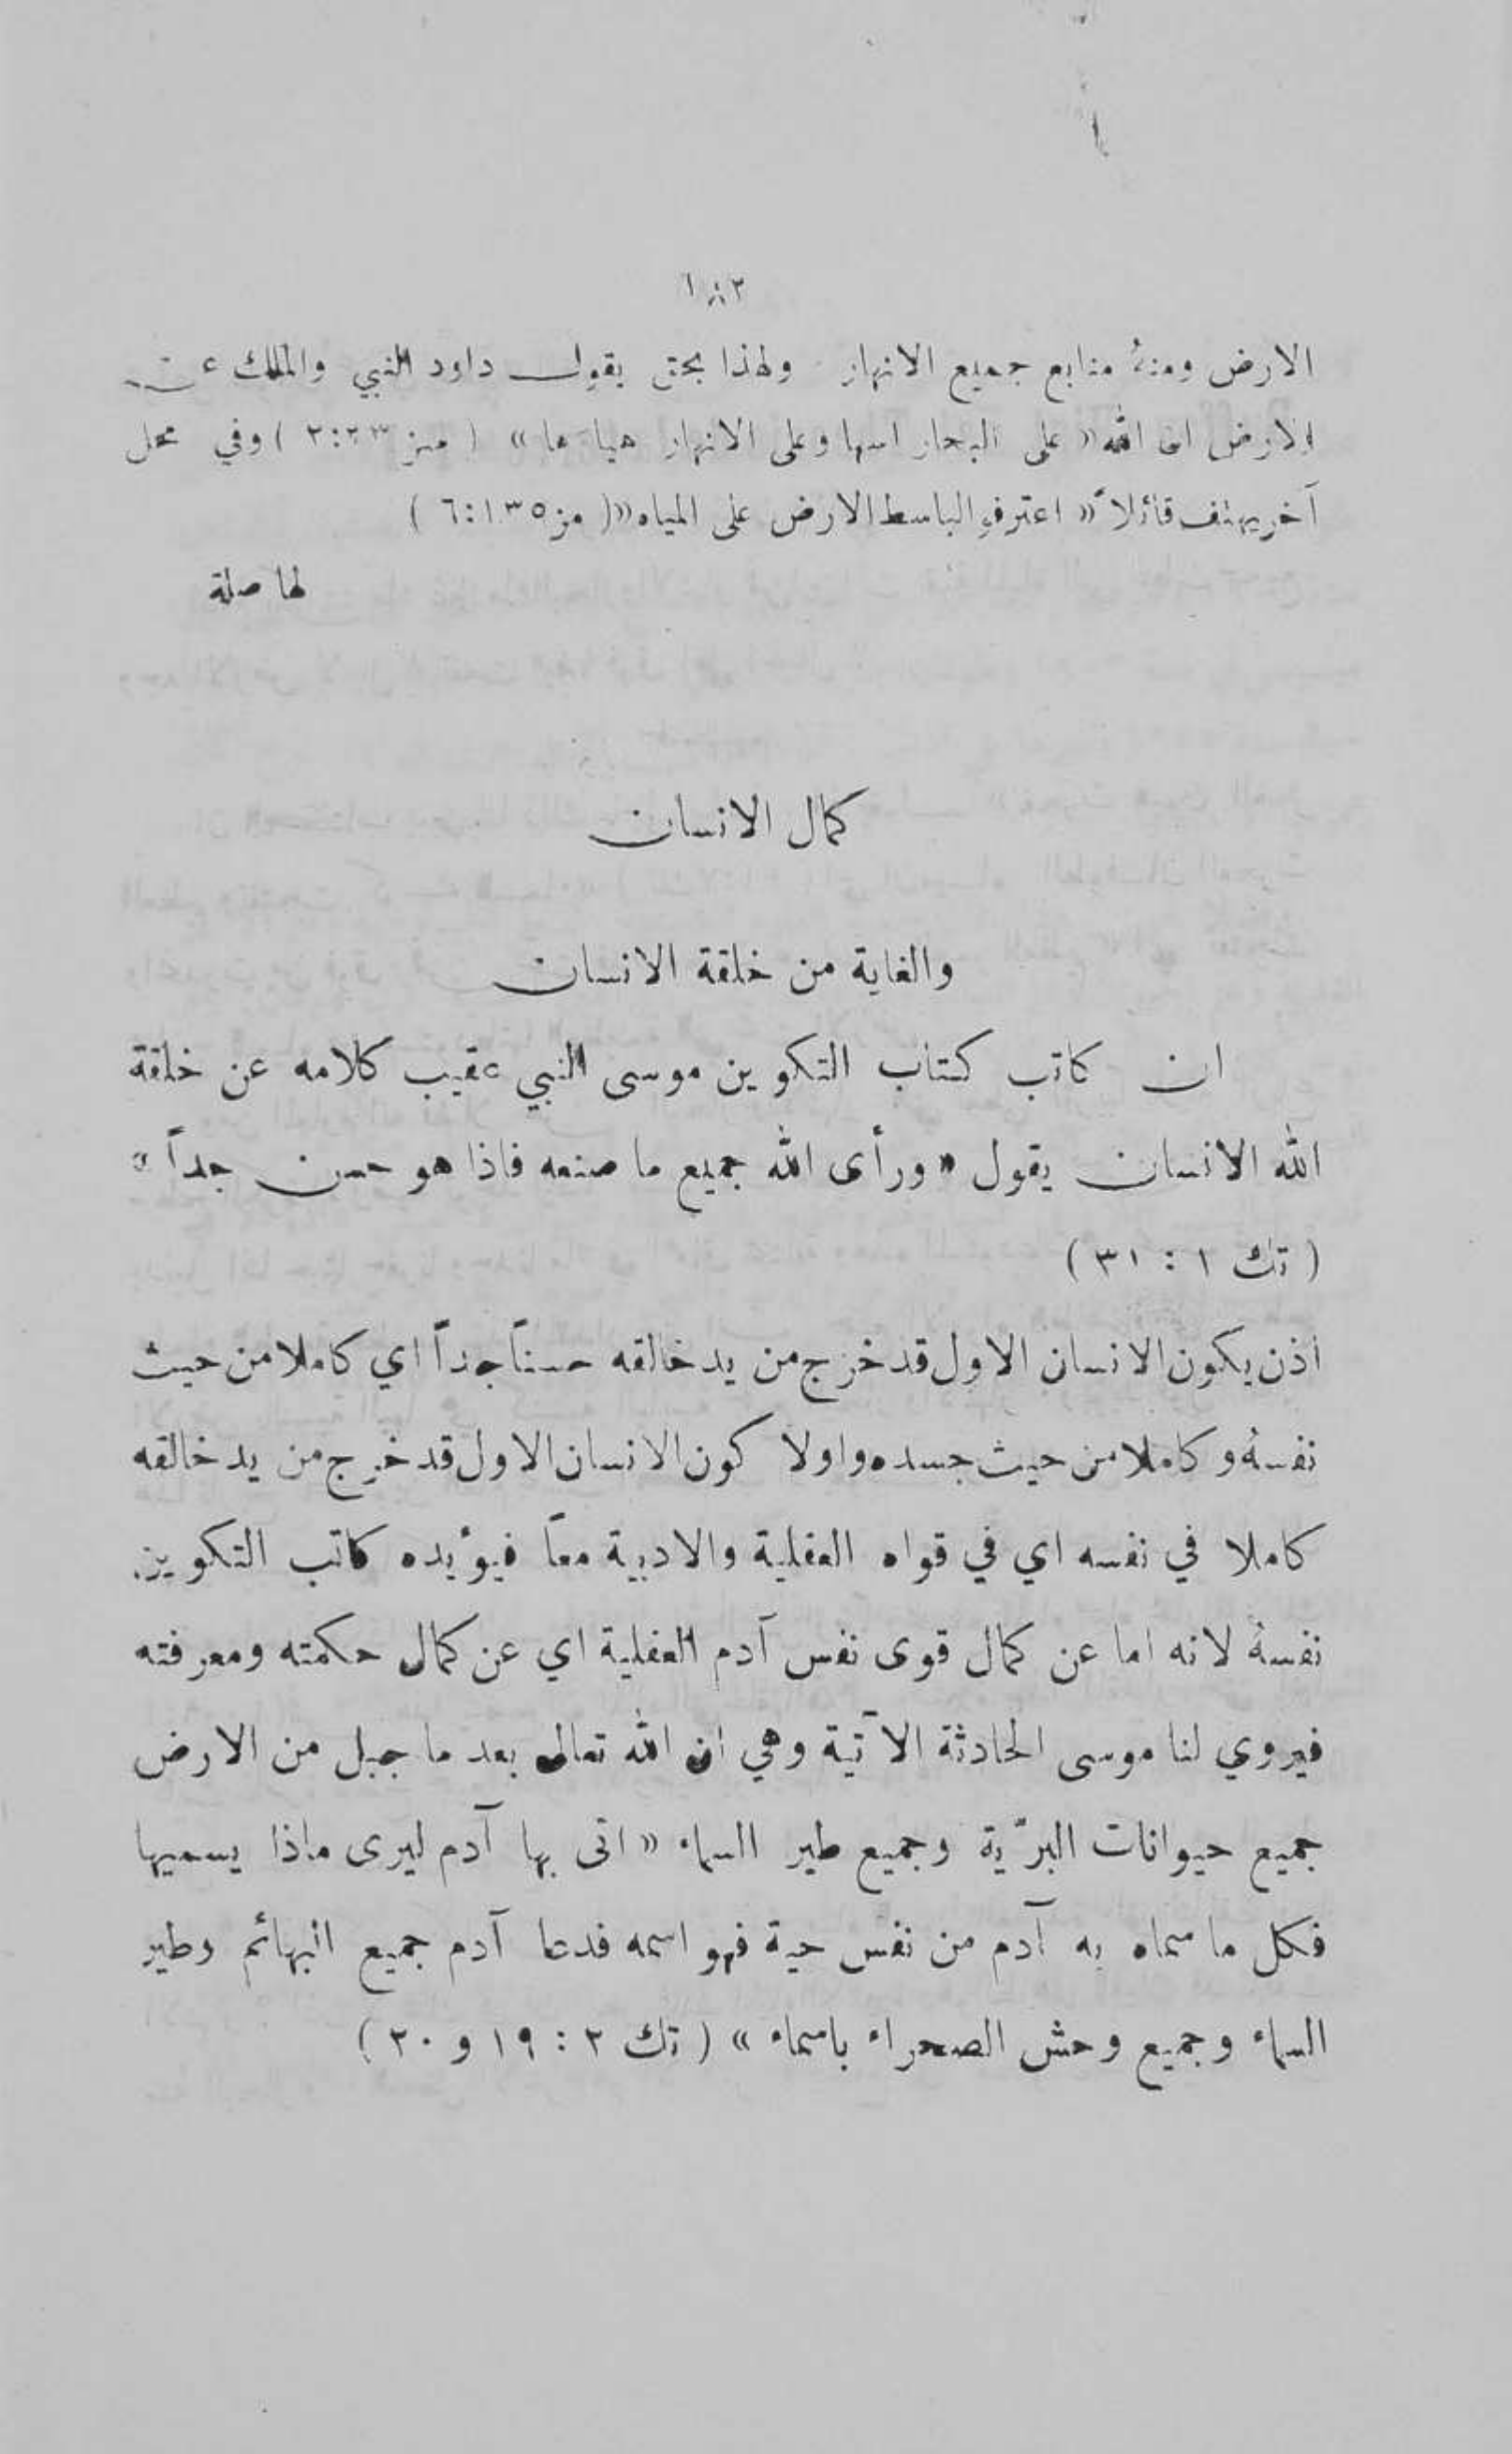 ١٨٣
الارض ومنهُ منابع جميع الانهار ولهذا بحق يقول داود النبي والملك عن
الارض ان الله « على البحار اسها وعلى الانهار هيأها » ( مز ٢٣:٢ ) وفي محل
آخر يهتف قائلاً « اعترفوا لباسط الارض على المياه » ( مز ١٣٥:٦ )
لها صلة
كمال الانسان
والغاية من خلقة الانسان
ان كاتب كتاب التكوين موسى النبي عقيب كلامه عن خلقة
الله الانسان يقول « ورأى الله جميع ما صنعه فاذا هو حسن جداً »
( تك ١ : ٣١ )
اذن يكون الانسان الاول قد خرج من يد خالقه حسناً جداً اي كاملا من حيث
نفسهُ وكاملا من حيث جسده واولا كون الانسان الاول قد خرج من يد خالقه
كاملا في نفسه اي في قواه العقلية والادبية معاً فيؤيده كاتب التكوين
نفسهُ لانه اما عن كمال قوى نفس آدم العقلية اي عن كمال حكمته ومعرفته
فيروي لنا موسى الحادثة الآتية وهي ان الله تعالى بعد ما جبل من الارض
جميع حيوانات البرّية وجميع طير السماء « اتى بها آدم ليرى ماذا يسميها
فكل ما سماه به آدم من نفس حية فهو اسمه فدعا آدم جميع البهائم وطير
السماء وجميع وحش الصحراء باسماء » ( تك ٢ : ١٩ و ٢٠ )